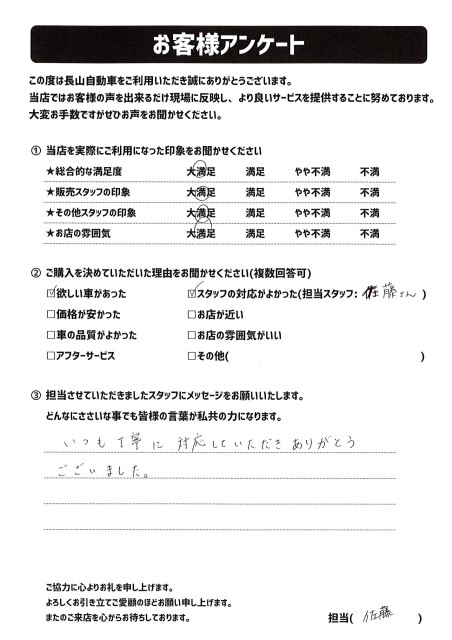 お客様アンケート
この度は長山自動車をご利用いただき誠にありがとうございます。
当店ではお客様の声を出来るだけ現場に反映し、より良いサービスを提供することに努めております。
大変お手数ですがぜひお声をお聞かせください。
① 当店を実際にご利用になった印象をお聞かせください
★総合的な満足度 大満足 満足 やや不満 不満
★販売スタッフの印象 大満足 満足 やや不満 不満
★その他スタッフの印象 大満足 満足 やや不満 不満
★お店の雰囲気 大満足 満足 やや不満 不満
② ご購入を決めていただいた理由をお聞かせください(複数回答可)
☑欲しい車があった ☑スタッフの対応がよかった(担当スタッフ: 佐藤さん )
□価格が安かった □お店が近い
□車の品質がよかった □お店の雰囲気がいい
□アフターサービス □その他( )
③ 担当させていただきましたスタッフにメッセージをお願いいたします。
どんなにささいな事でも皆様の言葉が私共の力になります。
いつも丁寧に対応していただきありがとう
ございました。
ご協力に心よりお礼を申し上げます。
よろしくお引き立てご愛顧のほどお願い申し上げます。
またのご来店を心からお待ちしております。
担当( 佐藤 )